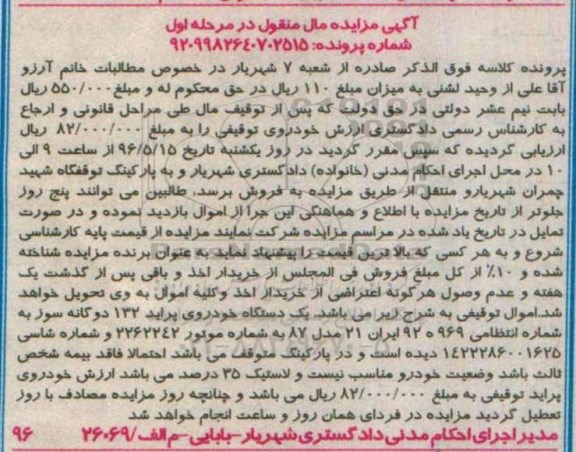 آگهی مزایده مال منقول در مرحله اول
شماره پرونده: ۹۲۰۹۹۸۲۶۴۰۷۰۲۵۱۵
پرونده کلاسه فوق الذکر صادره از شعبه ۷ شهریار در خصوص مطالبات خانم آرزو
آقا علی از وحید لشنی به میزان مبلغ ۱۱۰ ریال در حق محکوم له و مبلغ ۵۵۰/۰۰۰ ریال
بابت نیم عشر دولتی در حق دولت که پس از توقیف مال طی مراحل قانونی و ارجاع
به کارشناس رسمی دادگستری ارزش خودروی توقیفی را به مبلغ ۸۲/۰۰۰/۰۰۰ ریال
ارزیابی گردیده که سپس مقرر گردید در روز یکشنبه تاریخ ۹۶/۵/۱۵ از ساعت ۹ الی
۱۰ در محل اجرای احکام مدنی (خانواده) دادگستری شهریار و به پارکینگ توقفگاه شهید
چمران شهریارو منتقل از طریق مزایده به فروش برسد، طالبین می توانند پنج روز
جلوتر از تاریخ مزایده با اطلاع و هماهنگی این اجرا از اموال بازدید نموده و در صورت
تمایل در تاریخ یاد شده در مراسم مزایده شرکت نمایند مزایده از قیمت پایه کارشناسی
شروع و به هر کسی که بالاترین قیمت را پیشنهاد نماید به عنوان برنده مزایده شناخته
شده و ۱۰٪ از کل مبلغ فروش فی المجلس از خریدار اخذ و باقی پس از گذشت یک
هفته و عدم وصول هرگونه اعتراضی از خریدار اخذ و کلیه اموال به وی تحویل خواهد
شد.اموال توقیفی به شرح زیر می باشد. یک دستگاه خودروی پراید ۱۳۲ دوگانه سوز به
شماره انتظامی ۹۶۹ ه ۹۲ ایران ۲۱ مدل ۸۷ به شماره موتور ۲۲۶۲۲۴۲ و شماره شاسی
۱۴۲۲۲۸۶۰۰۱۶۲۵ دیده است و در پارکینگ متوقف می باشد احتمالا فاقد بیمه شخص
ثالث باشد وضعیت خودرو مناسب نیست و لاستیک ۳۵ درصد می باشد ارزش خودروی
پراید توقیفی به مبلغ ۸۲/۰۰۰/۰۰۰ ریال می باشد و چنانچه روز مزایده مصادف با روز
تعطیل گردید مزایده در فردای همان روز و ساعت انجام خواهد شد
مدیر اجرای احکام مدنی دادگستری شهریار-بابایی-م الف/۲۶۰۶۹ ۹۶